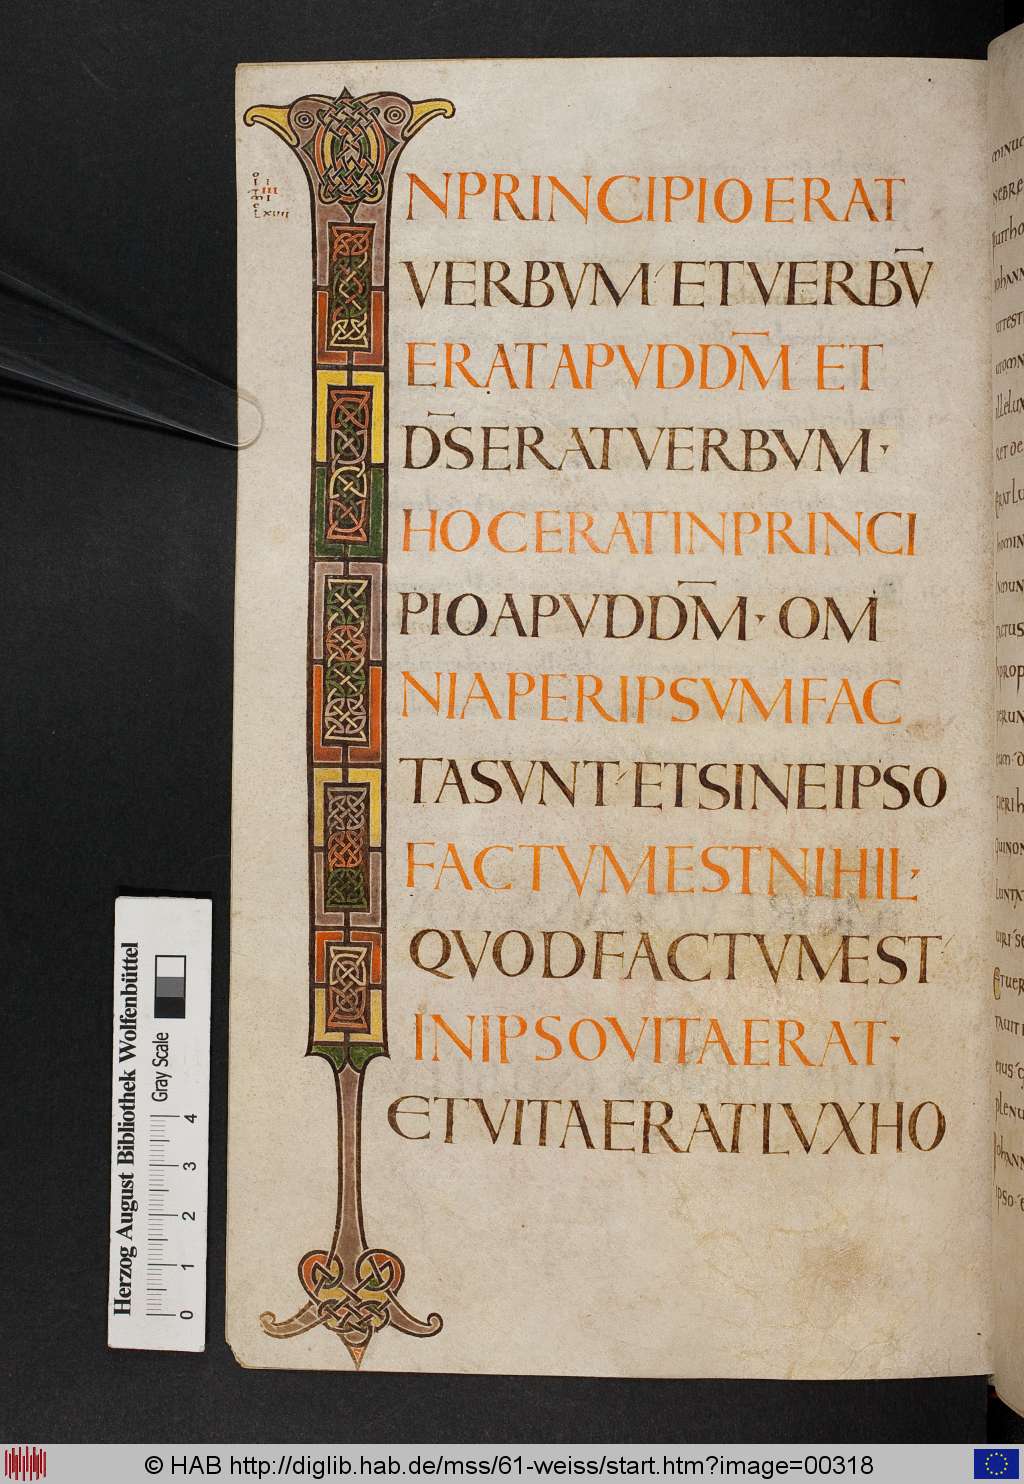 INPRINCIPIO ERAT
VERBVM ET VERBV̄
ERAT APVD DM̄ ET
DS̄ ERAT VERBVM ·
HOC ERAT IN PRINCI
PIO APVD DM̄ · OM
NIA PER IPSVM FAC
TA SVNT ET SINE IPSO
FACTVM EST NIHIL ·
QVOD FACTVM EST
IN IPSO VITA ERAT ·
ET VITA ERAT LVX HO
Herzog August Bibliothek Wolfenbüttel
Gray Scale
0 1 2 3 4
© HAB http://diglib.hab.de/mss/61-weiss/start.htm?image=00318